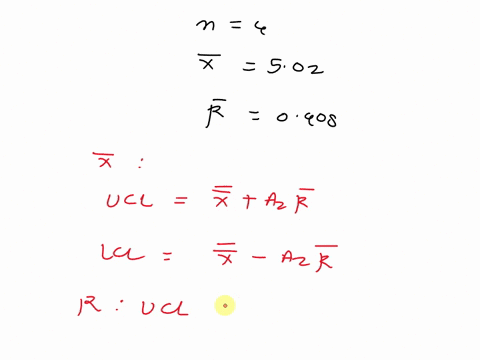 n = 4
x̅ = 5.02
R̅ = 0.408
x̅ :
UCL = x̿ + A₂ R̅
LCL = x̿ − A₂ R̅
R : UCL